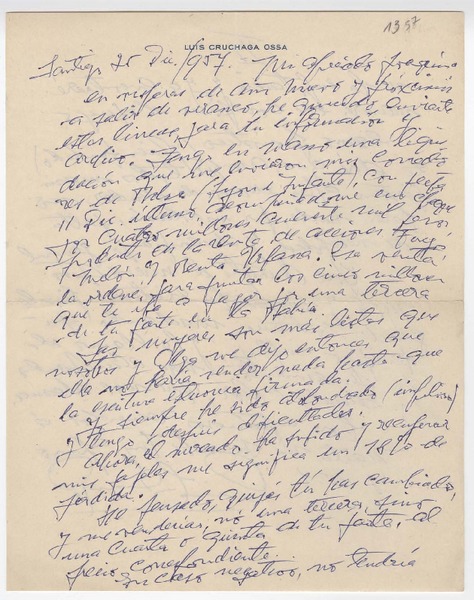 1957
LUIS CRUCHAGA OSSA
Santiago 25 Dic./957. Mi apreciado Joaquín:
en vísperas de Año Nuevo y próximos
a salir de veraneo, he querido enviarte
estas líneas para tu información y
archivo. Tengo en mano una liqui
dación que me enviaron mis corredo
res de Bolsa ( e Infante), con fecha
11 Dic. acompañándome un cheque
por cuatro millones cuarenta mil pesos
de la venta de acciones
Melón y Renta Urbana. Esa venta
la ordené para juntar los cinco millones
que te iba a pagar por una tercera
de tu parte en la Bahía.
Las mujeres son más listas que
nosotros y Olga me dijo entonces que
ella no había vender nada hasta que
la escritura estuviera firmada.
Yo siempre he sido atolondrado (impulsivo)
y tengo después dificultades.
Ahora, el mercado ha subido y recuperar
mis papeles me significa un 18% de
pérdida.
He pensado, quizás tú has cambiado,
y me venderías, no una tercera, sino
una cuarta o quinta de tu parte, al
precio correspondiente.
En caso negativo, no tendría